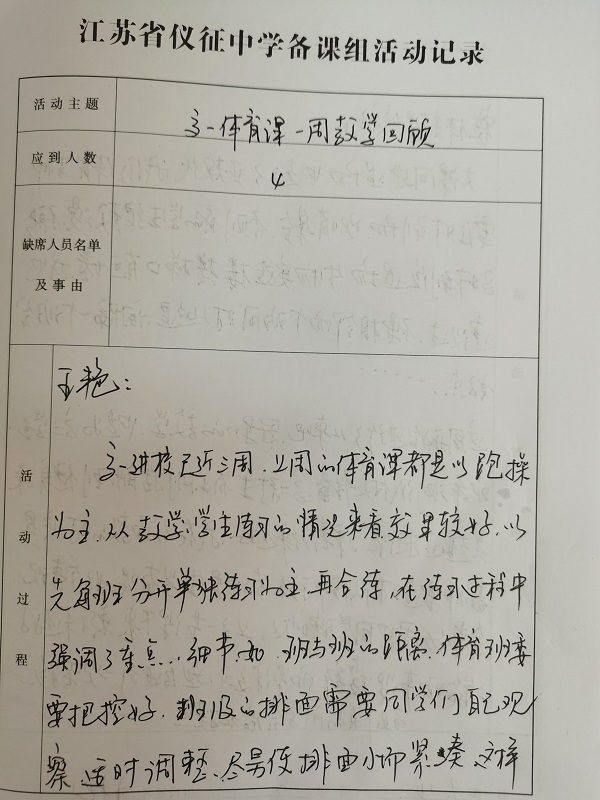 江苏省仪征中学备课组活动记录
活动主题
高一体育课一周教学回顾
应到人数
4
缺席人员名单
及事由
活动过程
王艳：
高一进校已近三周，上周的体育课都是以跑操
为主，从教学、学生练习的情况来看效果较好，以
先每班分开单独练习为主，再合练，在练习过程中
强调了重点、细节，如班与班的距离，体育班委
要把控好，班级的排面需要同学们自己观
察，适时调整，尽量使排面小而紧凑，这样